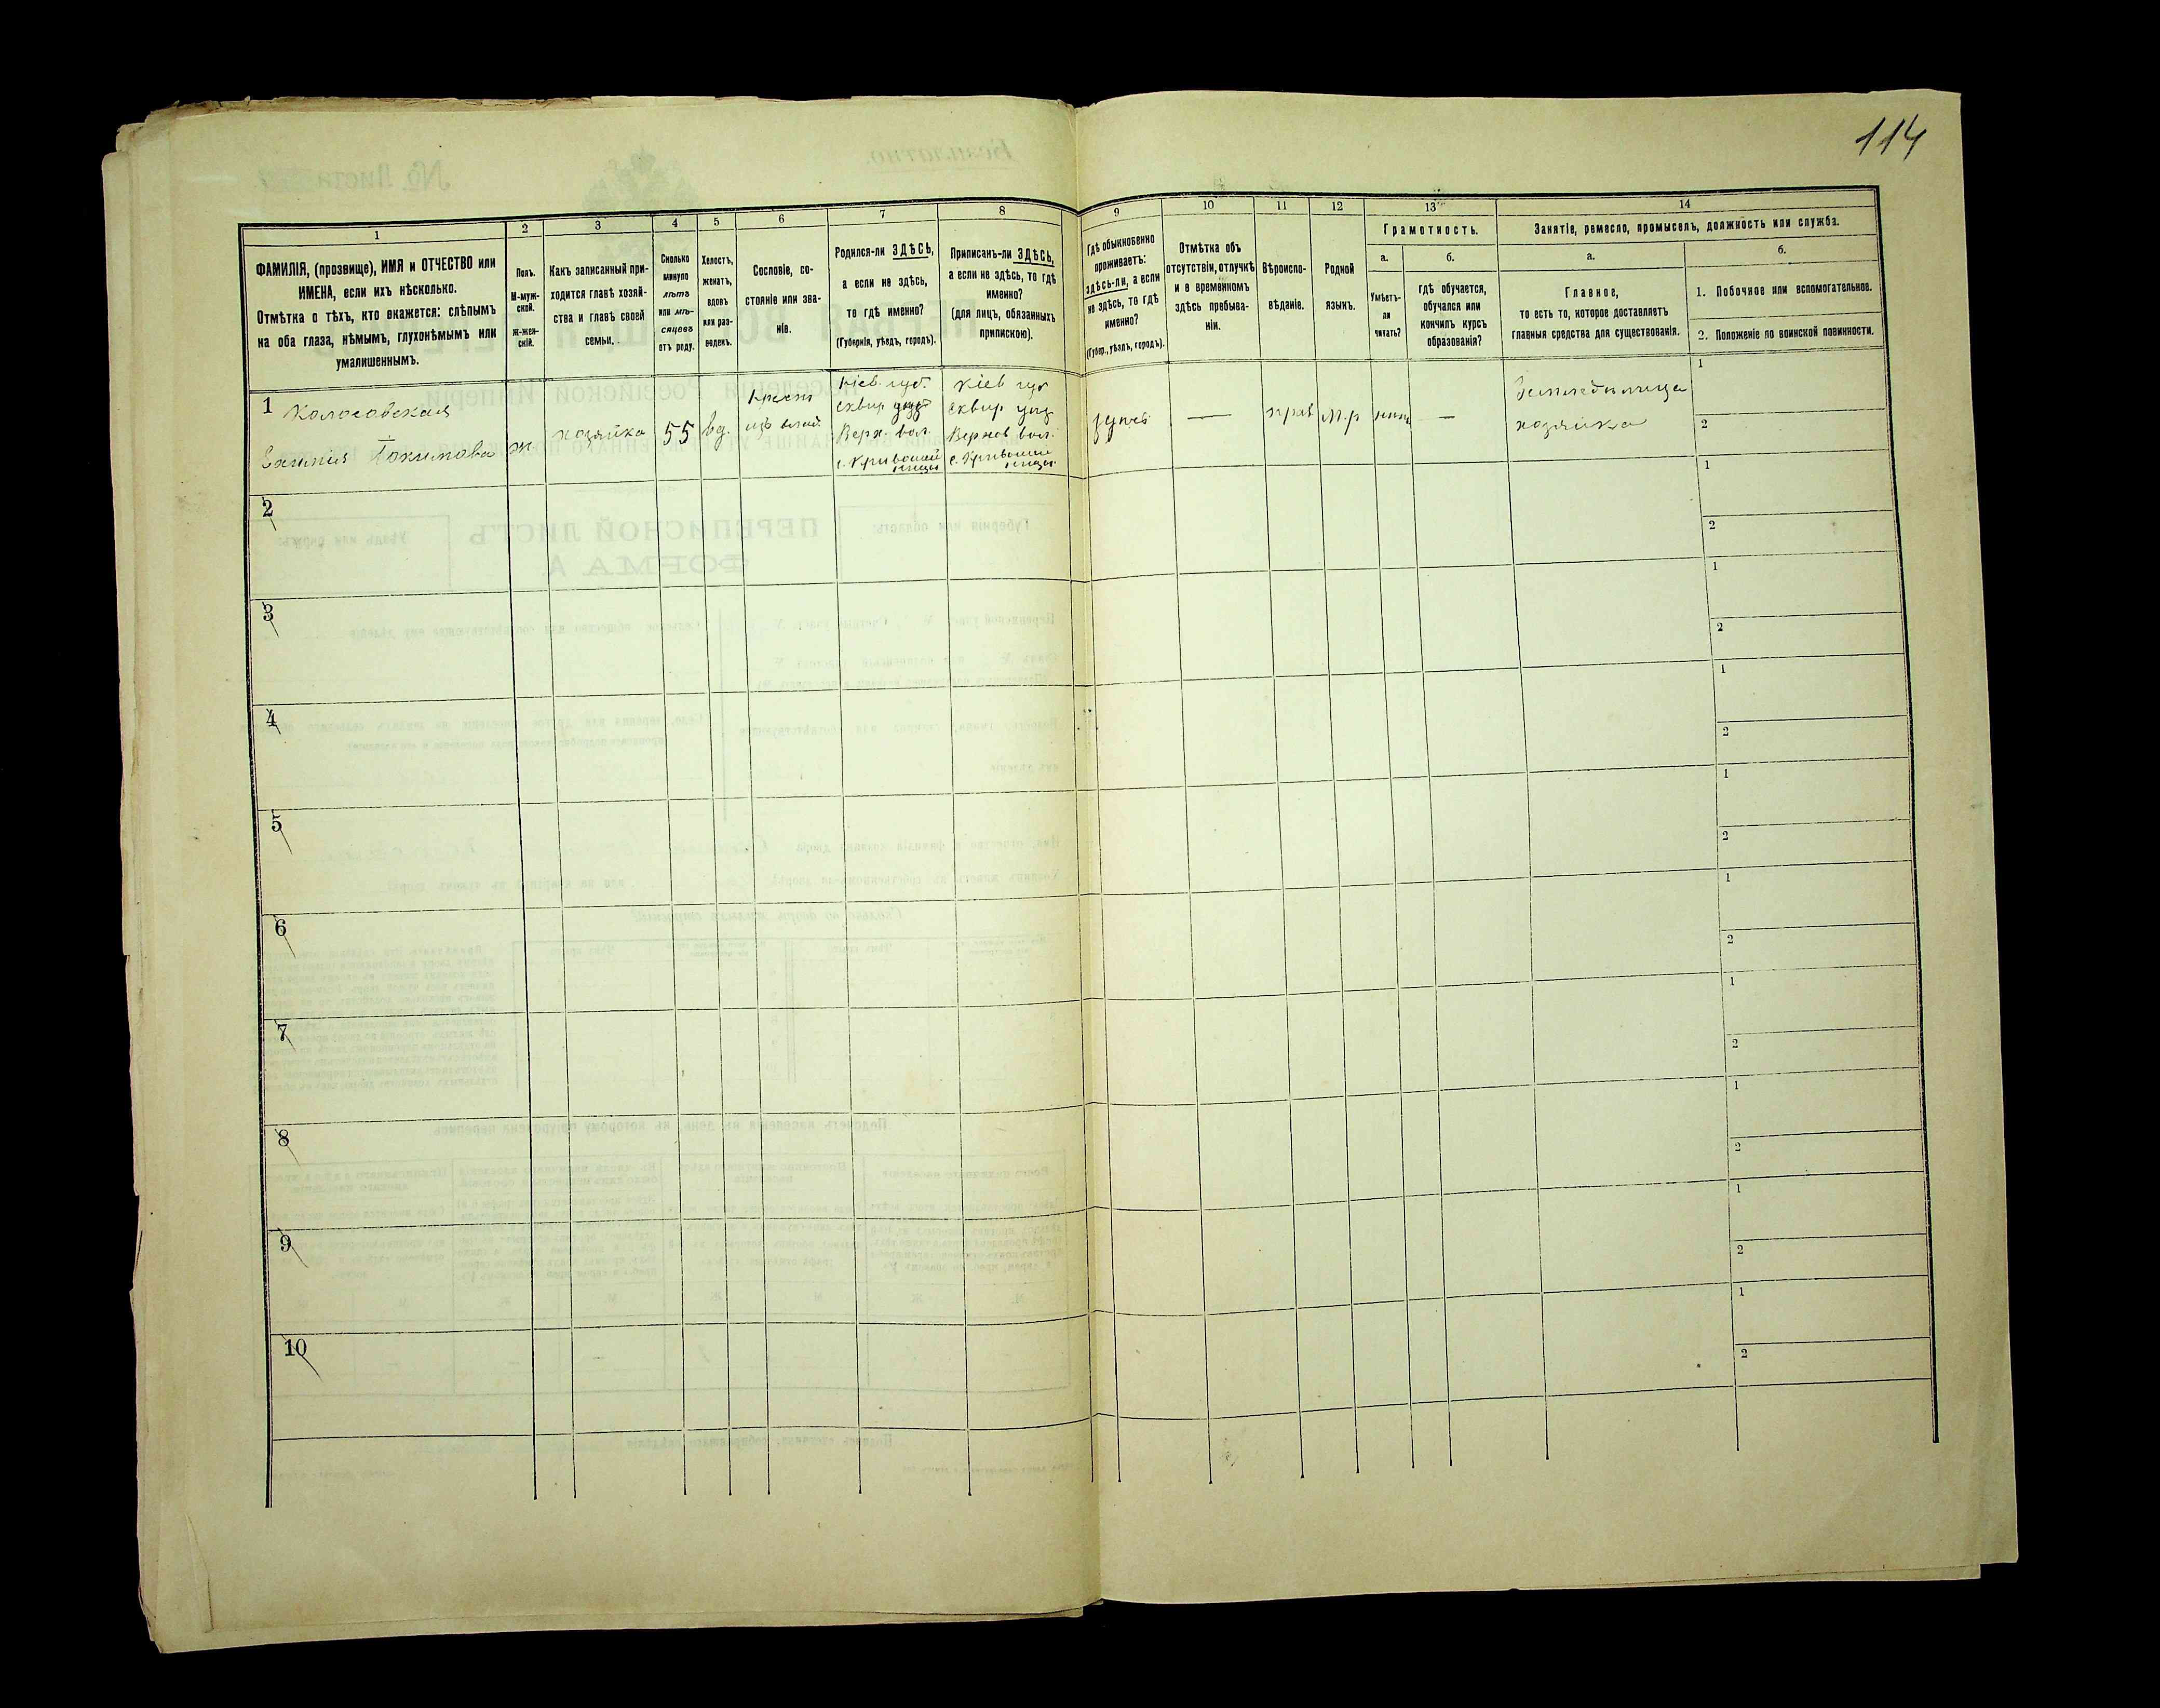 114
1
2
3
4
5
6
7
8
9
10
11
12
13
14
ФАМИЛІЯ, (прозвище), ИМЯ и ОТЧЕСТВО или
ИМЕНА, если ихъ нѣсколько.
Отмѣтка о тѣхъ, кто окажется: слѣпымъ
на оба глаза, нѣмымъ, глухонѣмымъ или
умалишеннымъ.
Полъ.
М-муж-
ской.
Ж-жен-
скій.
Какъ записанный при-
ходится главѣ хозяй-
ства и главѣ своей
семьи.
Сколько
минуло
лѣтъ
или мѣ-
сяцевъ
отъ роду.
Холостъ,
женатъ,
вдовъ
или раз-
веденъ.
Сословіе, со-
стояніе или зва-
ніе.
Родился-ли ЗДѢСЬ,
а если не здѣсь,
то гдѣ именно?
(Губернія, уѣздъ, городъ).
Приписанъ-ли ЗДѢСЬ,
а если не здѣсь, то гдѣ
именно?
(для лицъ, обязанныхъ
припискою).
Гдѣ обыкновенно
проживаетъ:
здѣсь-ли, а если
не здѣсь, то гдѣ
именно?
(Губер., уѣздъ, городъ).
Отмѣтка объ
отсутствіи, отлучкѣ
и о временномъ
здѣсь пребыва-
ніи.
Вѣроиспо-
вѣданіе.
Родной
языкъ.
Грамотность.
а.
Умѣетъ-
ли
читать?
б.
гдѣ обучается,
обучался или
кончилъ курсъ
образованія?
Занятіе, ремесло, промыселъ, должность или служба.
а.
Главное,
то есть то, которое доставляетъ
главныя средства для существованія.
б.
1. Побочное или вспомогательное.
2. Положеніе по воинской повинности.
1 Колосовская
Якимова
ж
хозяйка
55
вд.
Крест
изъ влад.
Кіев. губ.
Сквир уѣз
Верх. вол.
с. Кривошеи
нцы
Кіев губ
Сквир уѣз
Верхов вол.
с. Кривошеи
нцы
здѣсь
—
прав
м.р
—
Земледѣлица
хозяйка
1
2
2
1
2
3
1
2
4
1
2
5
1
2
6
1
2
7
1
2
8
1
2
9
1
2
10
1
2